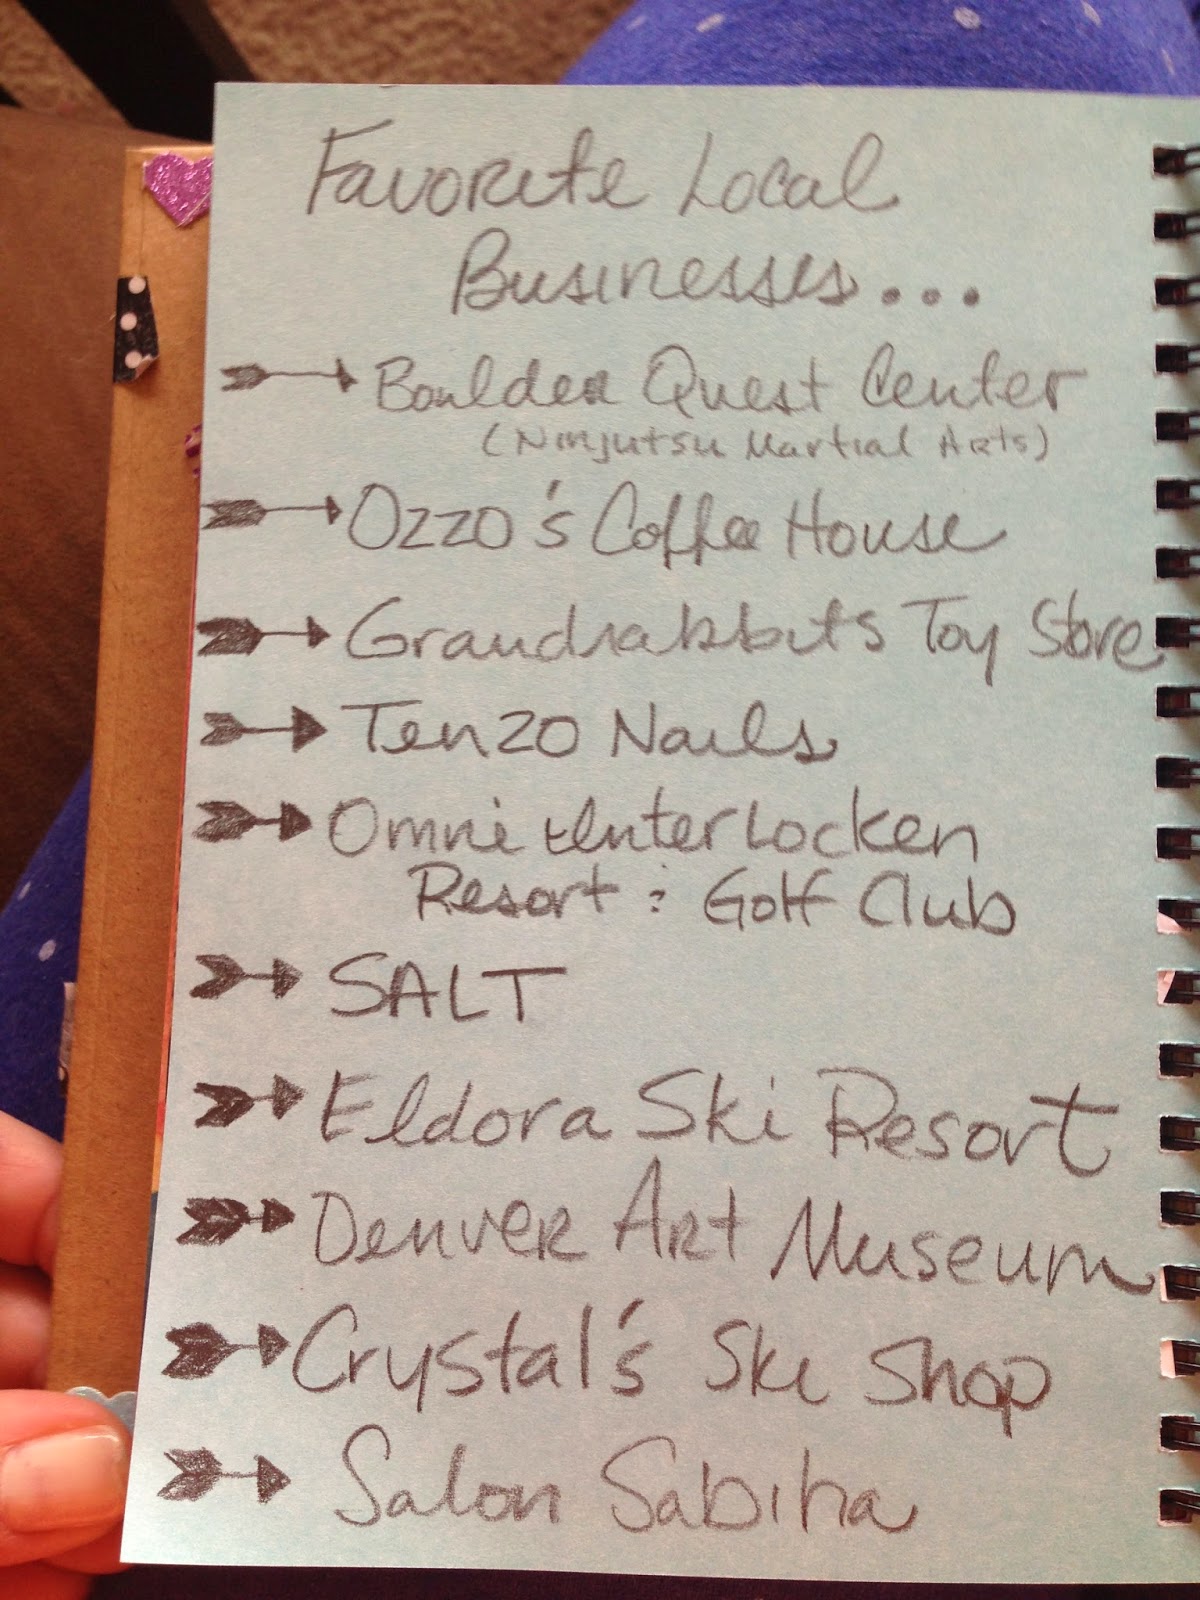 Favorite Local
Businesses...
Boulder Quest Center
(Ninjutsu Martial Arts)
Ozzo's Coffee House
Grandrabbits Toy Store
Tenzo Nails
Omni Interlocken
Resort & Golf Club
SALT
Eldora Ski Resort
Denver Art Museum
Crystal's Ski Shop
Salon Sabiha